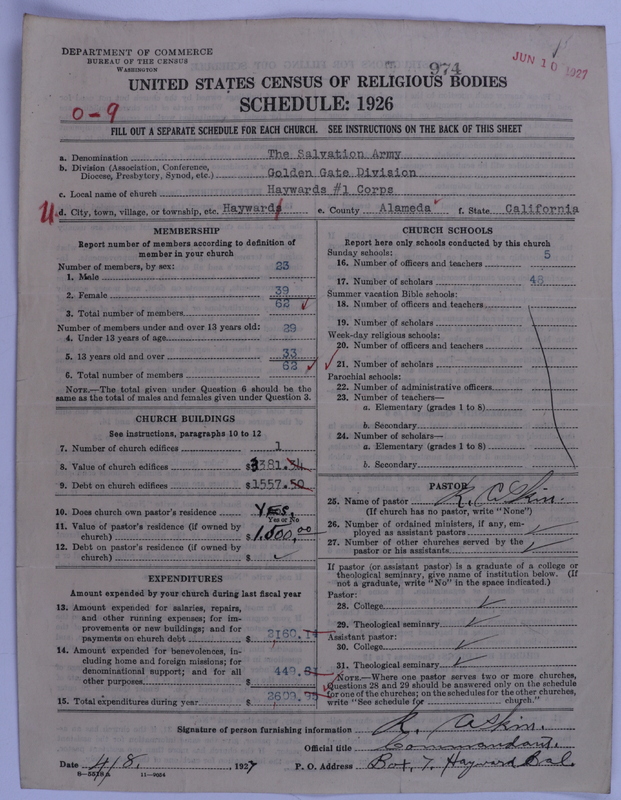 DEPARTMENT OF COMMERCE
BUREAU OF THE CENSUS
WASHINGTON
974
JUN 10 1927
UNITED STATES CENSUS OF RELIGIOUS BODIES
SCHEDULE: 1926
0-9
FILL OUT A SEPARATE SCHEDULE FOR EACH CHURCH. SEE INSTRUCTIONS ON THE BACK OF THIS SHEET
a. Denomination The Salvation Army
b. Division (Association, Conference, Diocese, Presbytery, Synod, etc.) Golden Gate Division
c. Local name of church Haywards #1 Corps
d. City, town, village, or township, etc. Haywards e. County Alameda f. State California
MEMBERSHIP
Report number of members according to definition of
member in your church
Number of members, by sex:
1. Male 23
2. Female 39
3. Total number of members 62
Number of members under and over 13 years old:
4. Under 13 years of age 29
5. 13 years old and over 33
6. Total number of members 62
NOTE.—The total given under Question 6 should be
same as the total of males and females given under Question 3.
CHURCH BUILDINGS
See instructions, paragraphs 10 to 12
7. Number of church edifices 1
8. Value of church edifices $3381.34
9. Debt on church edifices $1557.50
10. Does church own pastor's residence? Yes.
Yes or No
11. Value of pastor's residence (if owned by
church) $1,500,00
12. Debt on pastor's residence (if owned by
church) $
EXPENDITURES
Amount expended by your church during last fiscal year
13. Amount expended for salaries, repairs,
and other running expenses; for im-
provements or new buildings; and for
payments on church debt $ 2160.14
14. Amount expended for benevolences, in-
cluding home and foreign missions; for
denominational support; and for all
other purposes $ 449.81
15. Total expenditures during year $ 2609.95
CHURCH SCHOOLS
Report here only schools conducted by this church
Sunday schools:
16. Number of officers and teachers 5
17. Number of scholars 48
Summer vacation Bible schools:
18. Number of officers and teachers
19. Number of scholars
Week-day religious schools:
20. Number of officers and teachers
21. Number of scholars
Parochial schools:
22. Number of administrative officers
23. Number of teachers—
a. Elementary (grades 1 to 8)
b. Secondary
24. Number of scholars—
a. Elementary (grades 1 to 8)
b. Secondary
PASTOR
25. Name of pastor R. Askin.
(If church has no pastor, write "None")
26. Number of ordained ministers, if any, em-
ployed as assistant pastors
27. Number of other churches served by the
pastor or his assistants
If pastor (or assistant pastor) is a graduate of a college or
theological seminary, give name of institution below. (If
not a graduate, write "No" in the space indicated.)
Pastor:
28. College
29. Theological seminary
Assistant pastor:
30. College
31. Theological seminary
NOTE.—Where one pastor serves two or more churches,
Questions 28 and 29 should be answered only on the schedule
for one of the churches; on the schedules for the other churches,
write "See schedule for church."
Signature of person furnishing information R. Askin.
Official title Commandant.
Date 4/8. 1927 P. O. Address Box, 7, Hayward Cal.
8-5518A 11-9654